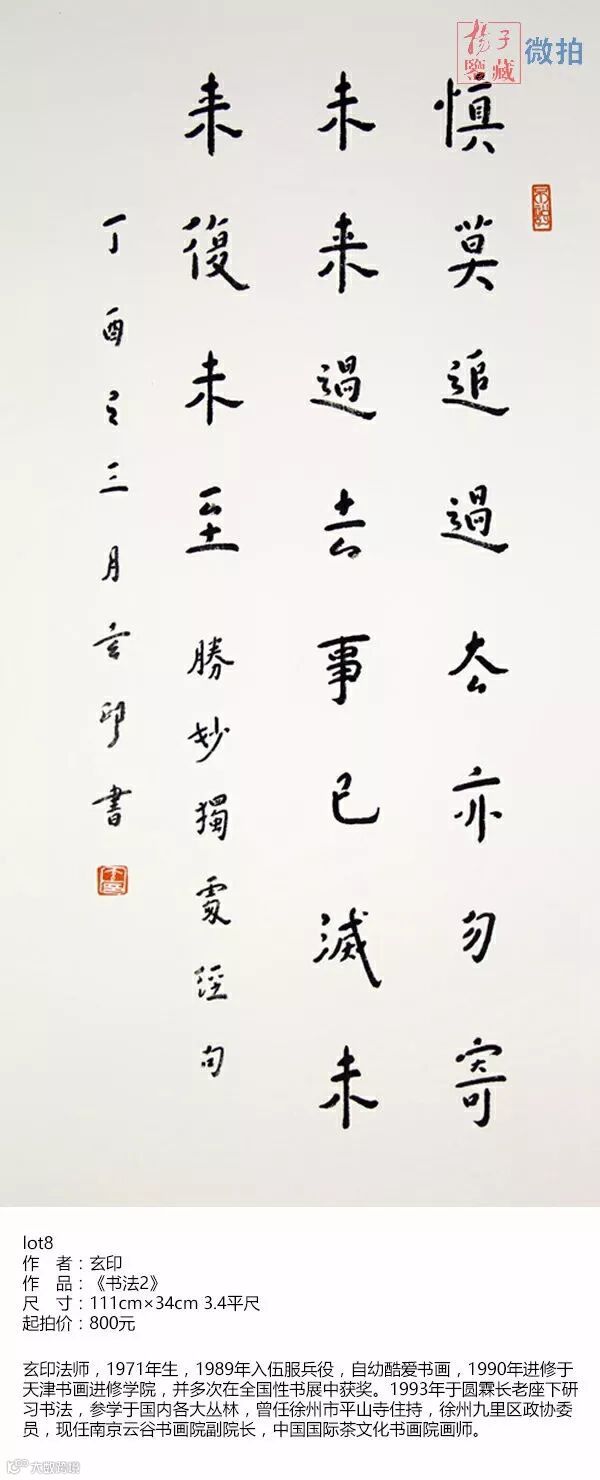 揚子
鑒藏 微拍
慎莫追過厺亦勿寄
未来過去事已滅未
来復未至 勝妙獨處經句
丁酉之三月玄印書
lot8
作 者：玄印
作 品：《书法2》
尺 寸：111cm×34cm 3.4平尺
起拍价：800元
玄印法师，1971年生，1989年入伍服兵役，自幼酷爱书画，1990年进修于
天津书画进修学院，并多次在全国性书展中获奖。1993年于圆霖长老座下研
习书法，参学于国内各大丛林，曾任徐州市平山寺住持，徐州九里区政协委
员，现任南京云谷书画院副院长，中国国际茶文化书画院画师。
大数跨境